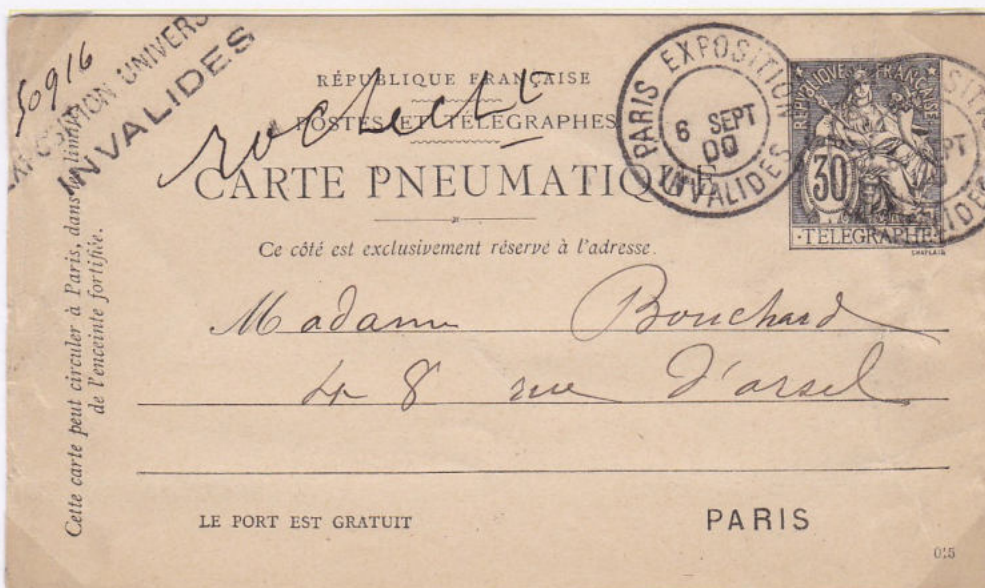 50916
EXPOSITION UNIVERS
INVALIDES
RÉPUBLIQUE FRANÇAISE
POSTES ET TÉLÉGRAPHES
CARTE PNEUMATIQUE
Ce côté est exclusivement réservé à l'adresse.
PARIS EXPOSITION
6 SEPT
00
INVALIDES
REPUBLIQUE FRANÇAISE
30
TELEGRAPHE
CHAPLAIN
SITION
PT
INVALIDES
Madame Bouchard
48 rue d'orsel
Cette carte peut circuler à Paris, dans les limites
de l'enceinte fortifiée.
LE PORT EST GRATUIT
PARIS
015